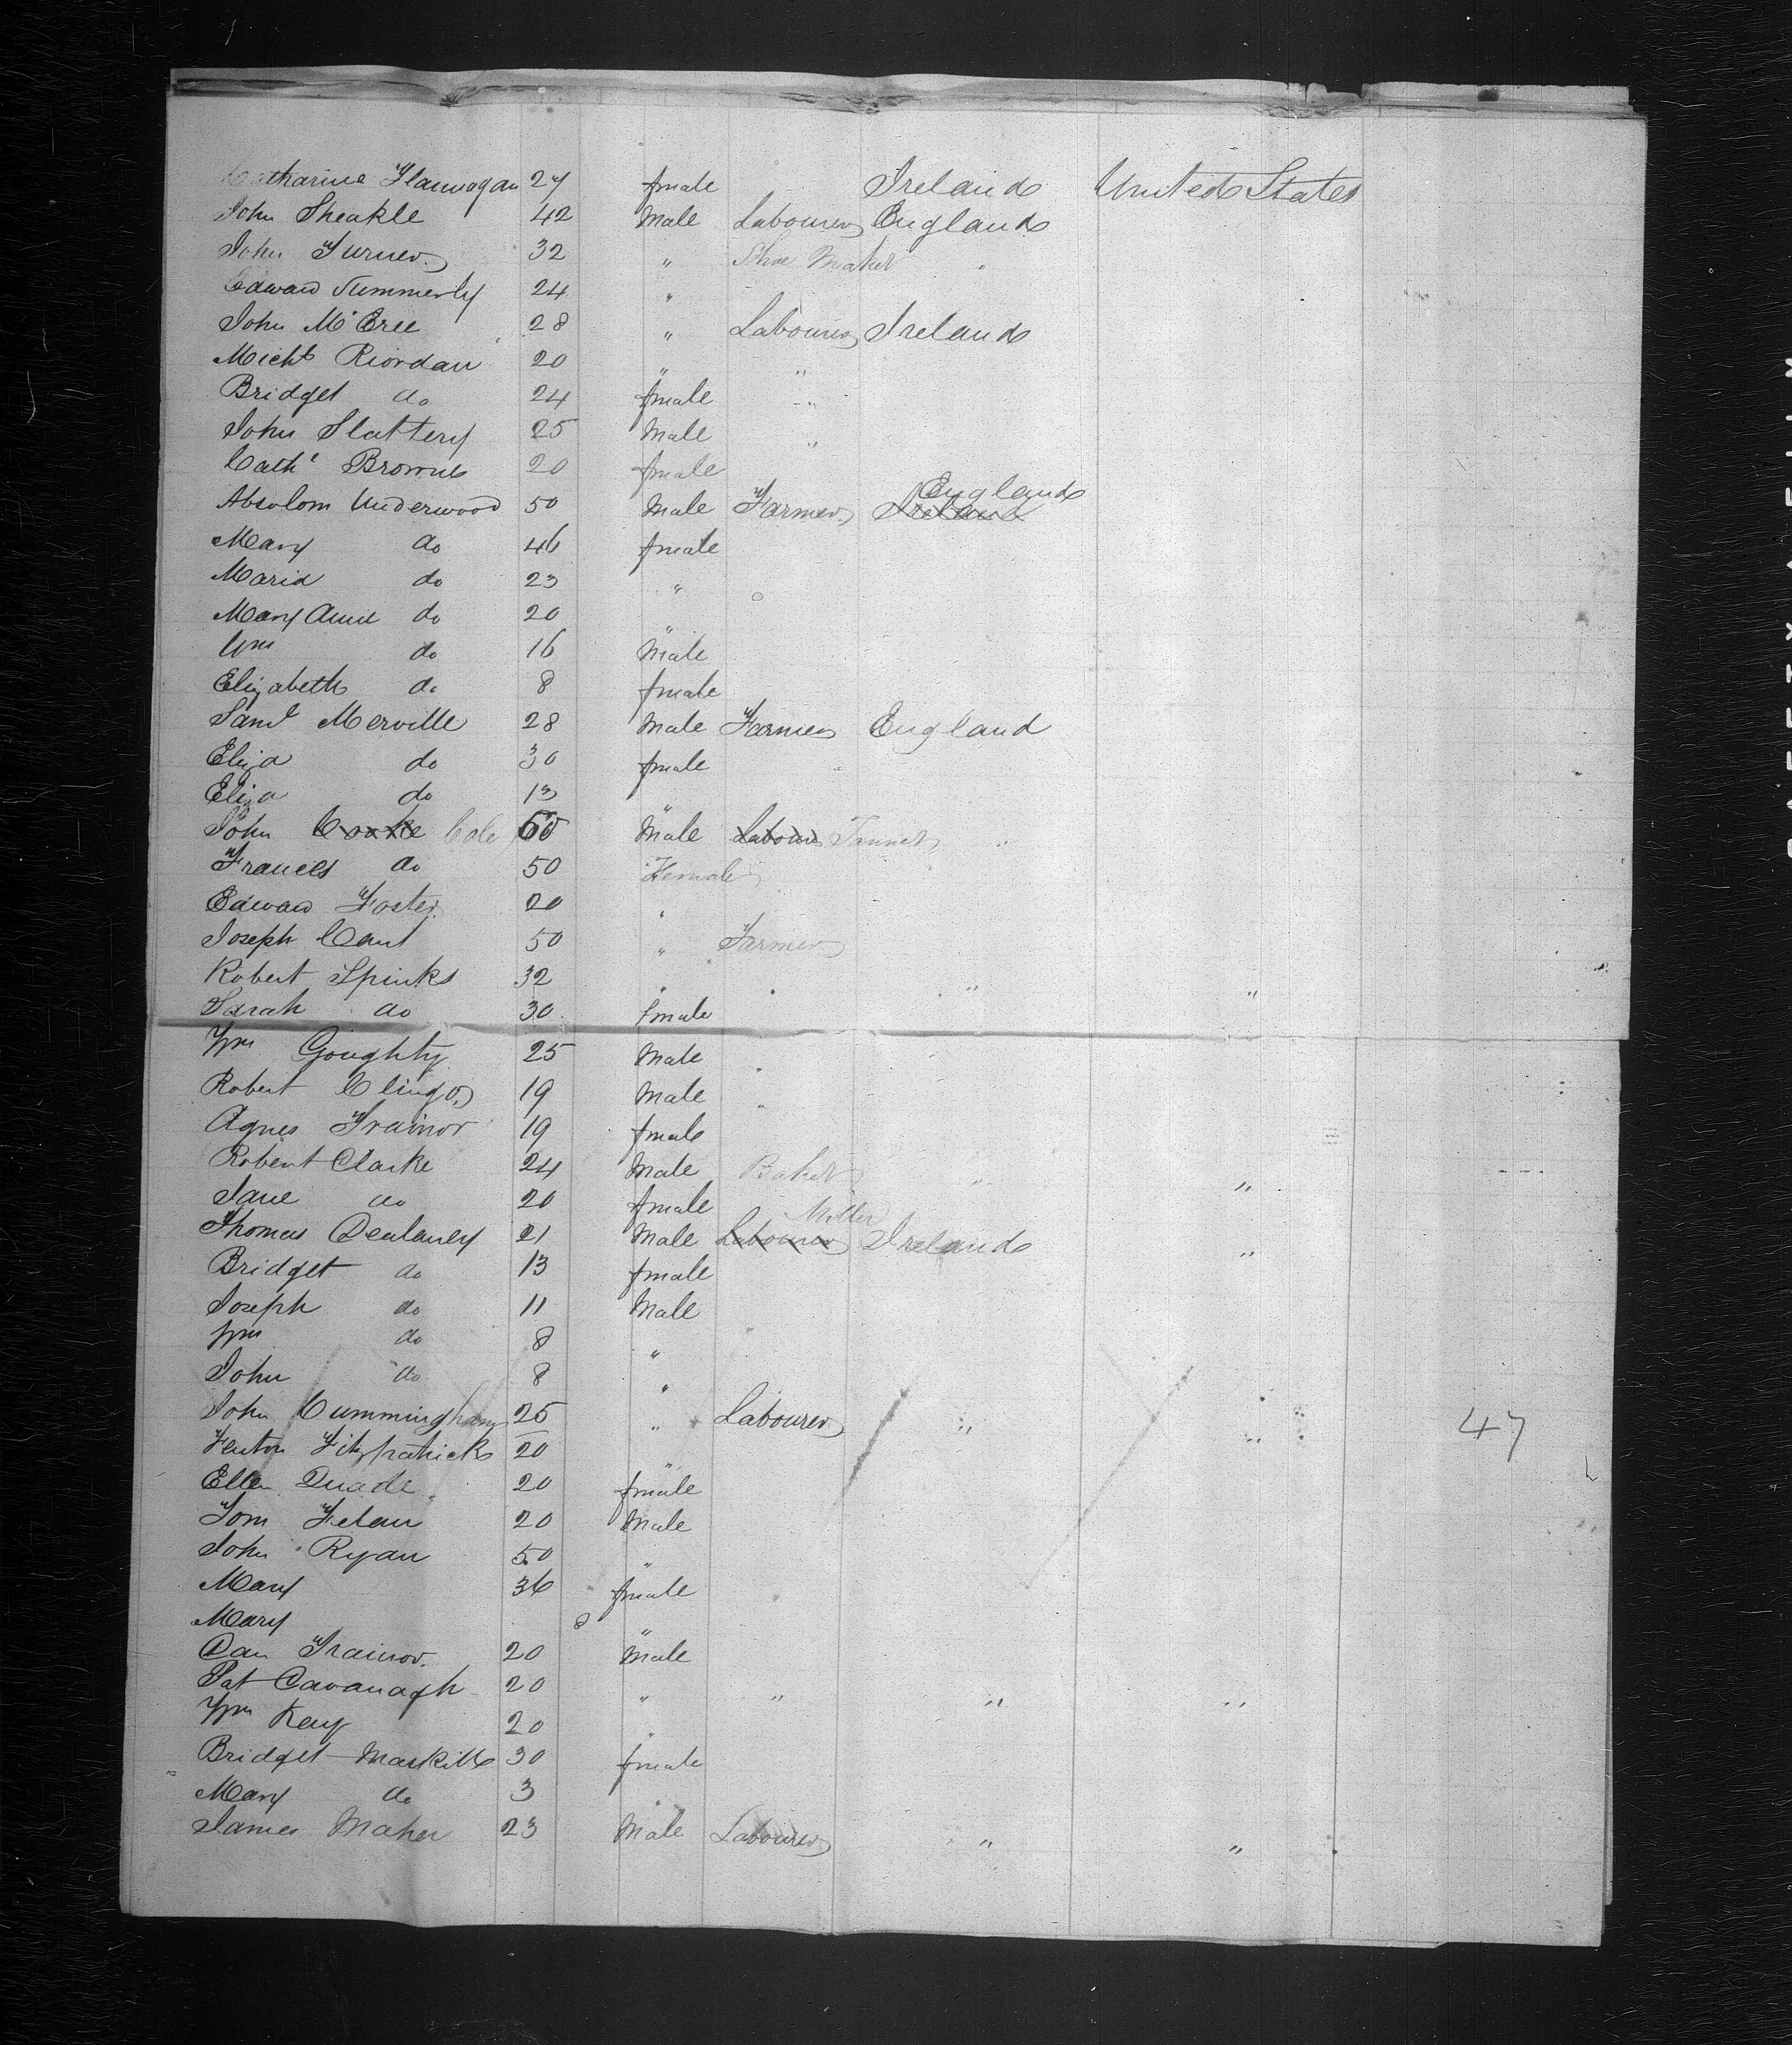 Catharine Flannagan 27 female Ireland United States
John Sheakle 42 Male Labourer England
John Turner 32 " Shoe Maker "
Edward Summerly 24 "
John McEree 28 " Labourer Ireland
Michl Riordan 20 " "
Bridget do 24 female "
John Slattery 25 Male "
Cathe Browne 20 female
England
Absolom Underwood 50 Male Farmer Ireland
Mary do 46 female
Maria do 23 "
Mary Anne do 20 "
Wm do 16 Male
Elizabeth do 8 female
Saml Merville 28 Male Farmer England
Eliza do 30 female
Eliza do 13 "
John Cooke Cole 60 Male Labourer Tanner "
Frances do 50 Female
Edward Foster 20 "
Joseph Cant 50 " Farmer
Robert Spinks 32 " " " "
Sarah do 30 female
Wm Goughty 25 Male "
Robert Clingo 19 Male "
Agnes Trainor 19 female
Robert Clarke 24 Male Baker " "
Jane do 20 female
Miller
Thomas Dealaney 21 Male Labourer Ireland "
Bridget do 13 female
Joseph do 11 Male
Wm do 8 "
John do 8 "
John Cummingham 25 " Labourer " " 47
Fenton Fitzpatrick 20 "
Ellen Quade 20 female
Tom Felan 20 Male
John Ryan 50 "
Mary 36 female
Mary "
Dan Trainor 20 Male
Pat Cavanagh 20 " " " "
Wm Kay 20 "
Bridget Maskill 30 female
Mary do 3 "
James Maher 23 Male Labourer " "